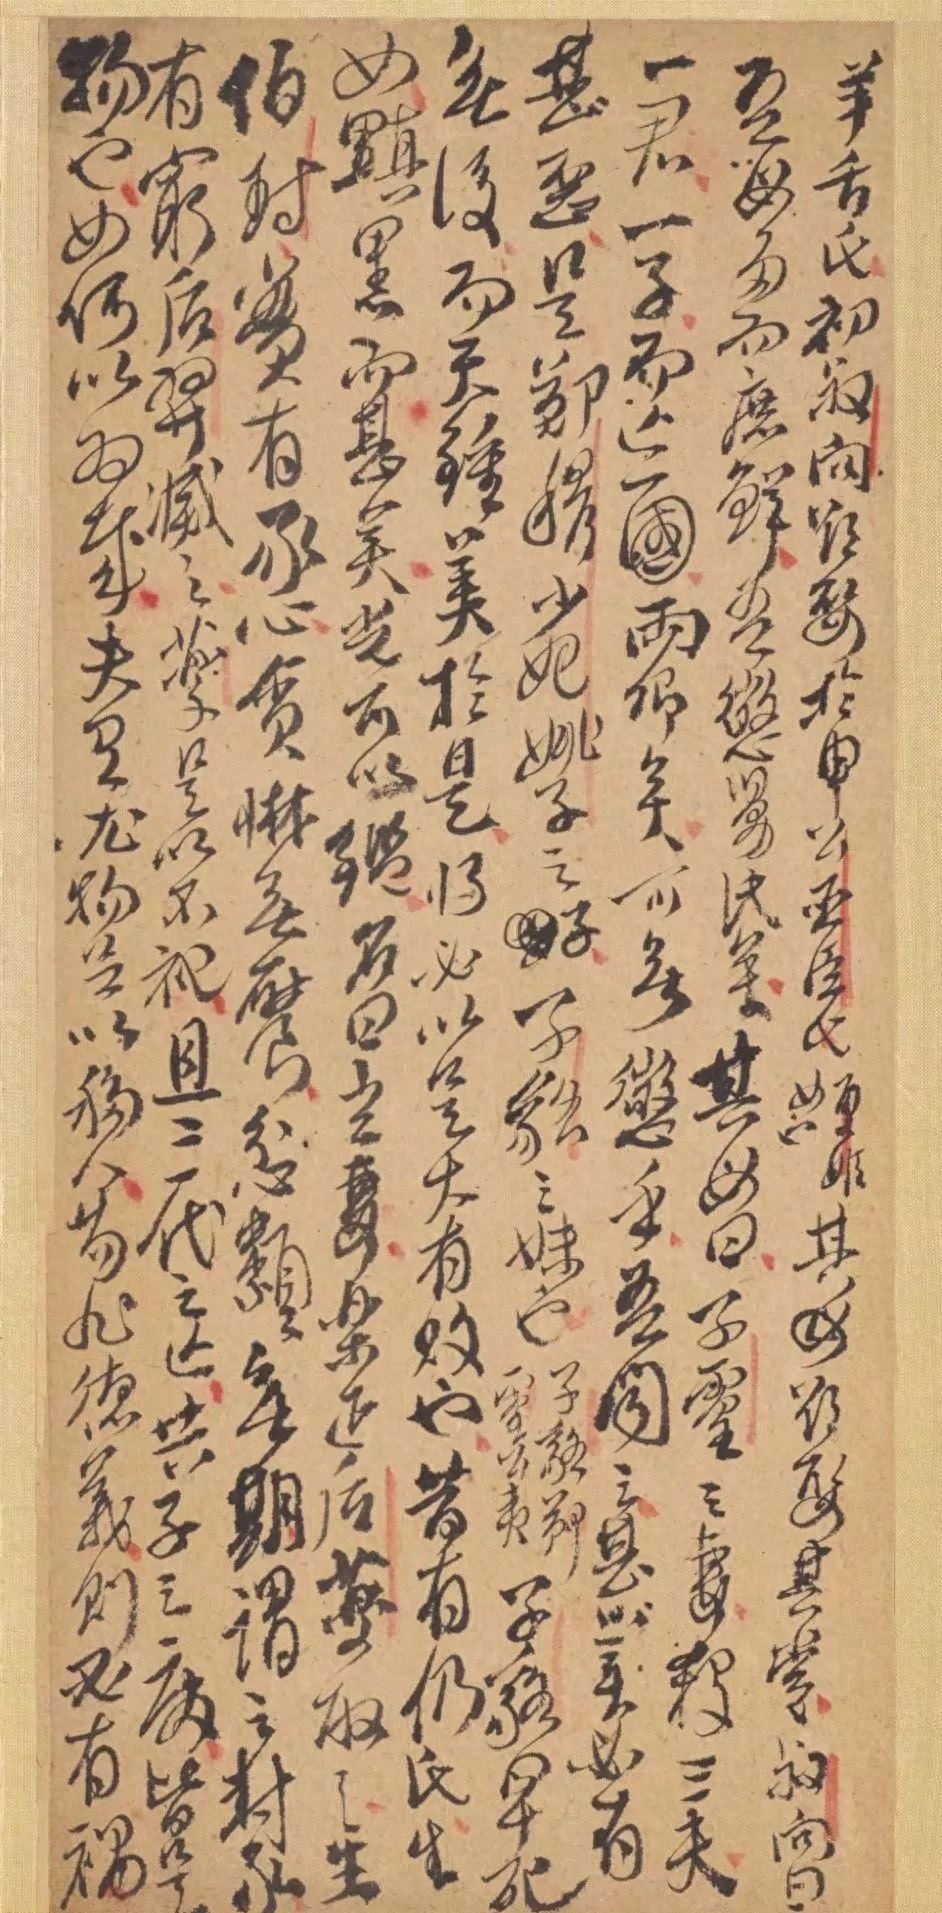 羊舌氏初叔向欲娶於申公巫臣氏夏姬女也其母欲娶其黨叔向曰
吾母多而庶鮮吾懲舅氏矣其母曰子靈之妻殺三夫
一君一子而亡一國兩卿矣可無懲乎吾聞之甚美必有
甚惡是鄭穆少妃姚子之子子貉之妹也子貉鄭靈公夷子貉早死
無後而天鍾美於是將必以是大有敗也昔有仍氏生
女黰黑而甚美光可以鑑名曰玄妻樂正后夔取之生
伯封實有豕心貪惏無饜忿纇無期謂之封豕
有窮后羿滅之夔是以不祀且三代之亡共子之廢皆是
物也女何以為哉夫有尤物足以移人苟非德義則必有禍